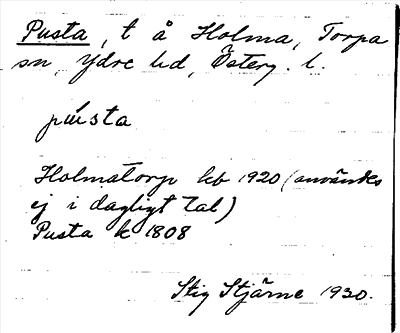 Pusta, t å Holma, Torpa
sn, Ydre hd, Österg. l.
pústa
Holmatorp kb 1920 (användes
ej i dagligt tal)
Pusta k 1808
Stig Stjärne 1930.